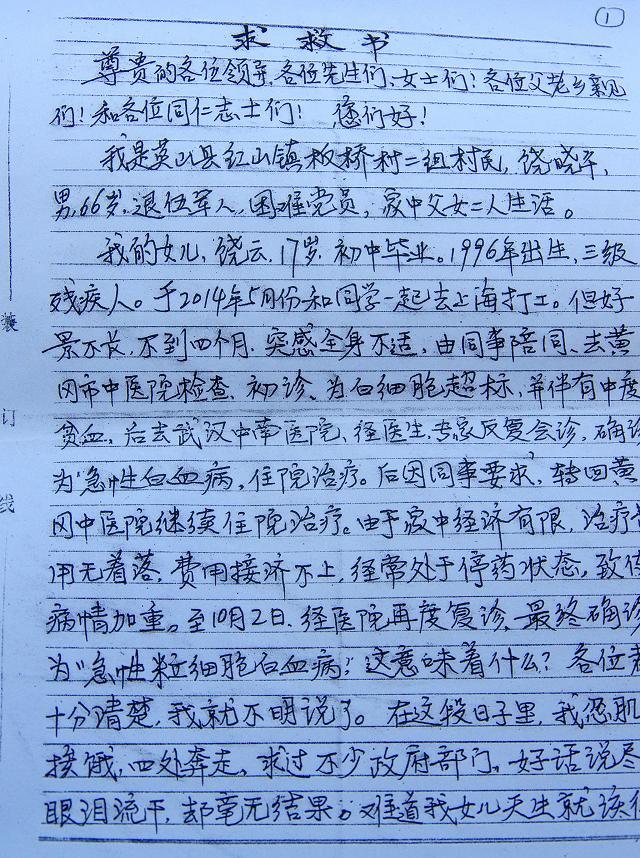 1
求救书
尊贵的各位领导,各位先生们,女士们!各位父老乡亲
们!和各位同仁志士们! 您们好!
我是英山县红山镇板桥村二组村民,饶晓平,
男,66岁,退伍军人,困难党员,家中父女二人生活。
我的女儿,饶云,17岁,初中毕业。1996年出生,三级
残疾人。于2014年5月份和同学一起去上海打工。但好
景不长,不到四个月,突感全身不适,由同事陪同,去黄
冈市中医院检查,初诊,为白细胞超标,并伴有中度
贫血,后去武汉中南医院,经医生,专家反复会诊,确诊
为"急性白血病,住院治疗。后因同事要求,转回黄
冈中医院继续住院治疗。由于家中经济有限,治疗
用无着落,费用接济不上,经常处于停药状态,致使
病情加重。至10月2日,经医院再度复诊,最终确诊
为"急性粒细胞白血病!这意味着什么?各位
十分清楚,我就不明说了。在这段日子里,我忍肌
挨饿,四处奔走,求过不少政府部门,好话说尽
眼泪流干,却毫无结果。难道我女儿天生就该
装
订
线